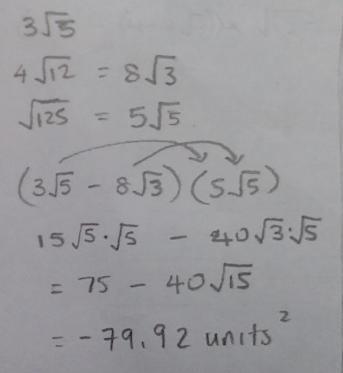 3√5
4√12 = 8√3
√125 = 5√5
(3√5 - 8√3)(5√5)
15√5·√5 - 40√3·√5
= 75 - 40√15
= -79.92 units²